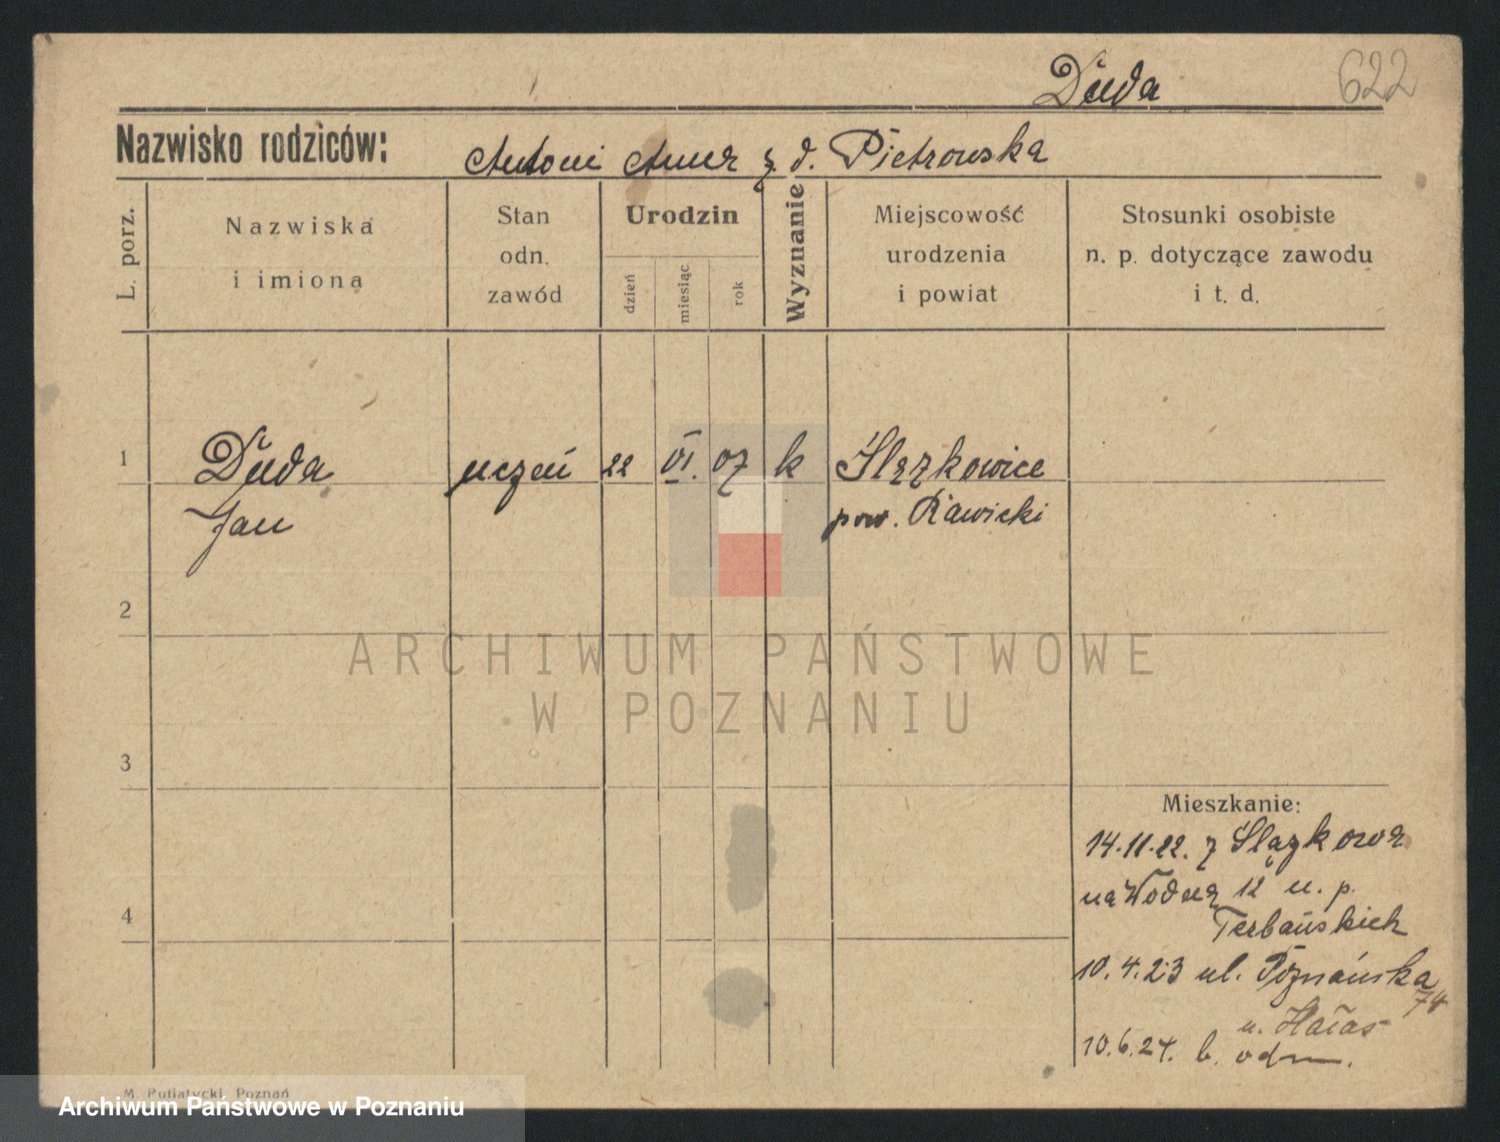 Duda 622
Nazwisko rodziców: Antoni Anna z d. Pietrowska
L. porz.
Nazwiska
i imiona
Stan
odn.
zawód
Urodzin
dzień
miesiąc
rok
Wyznanie
Miejscowość
urodzenia
i powiat
Stosunki osobiste
n. p. dotyczące zawodu
i t. d.
1 Duda uczeń 22 VI. 07 k Ślązkowice
Jan pow. Rawicki
2
ARCHIWUM PAŃSTWOWE
W POZNANIU
3
Mieszkanie:
14.11.22. z Ślązkowa
na Wodną 12 u. p.
4
Terbańskich
10.4.23 ul. Poznańska
74
u. Hałas
10.6.24. b. odm.
M. Putiatycki, Poznań
Archiwum Państwowe w Poznaniu